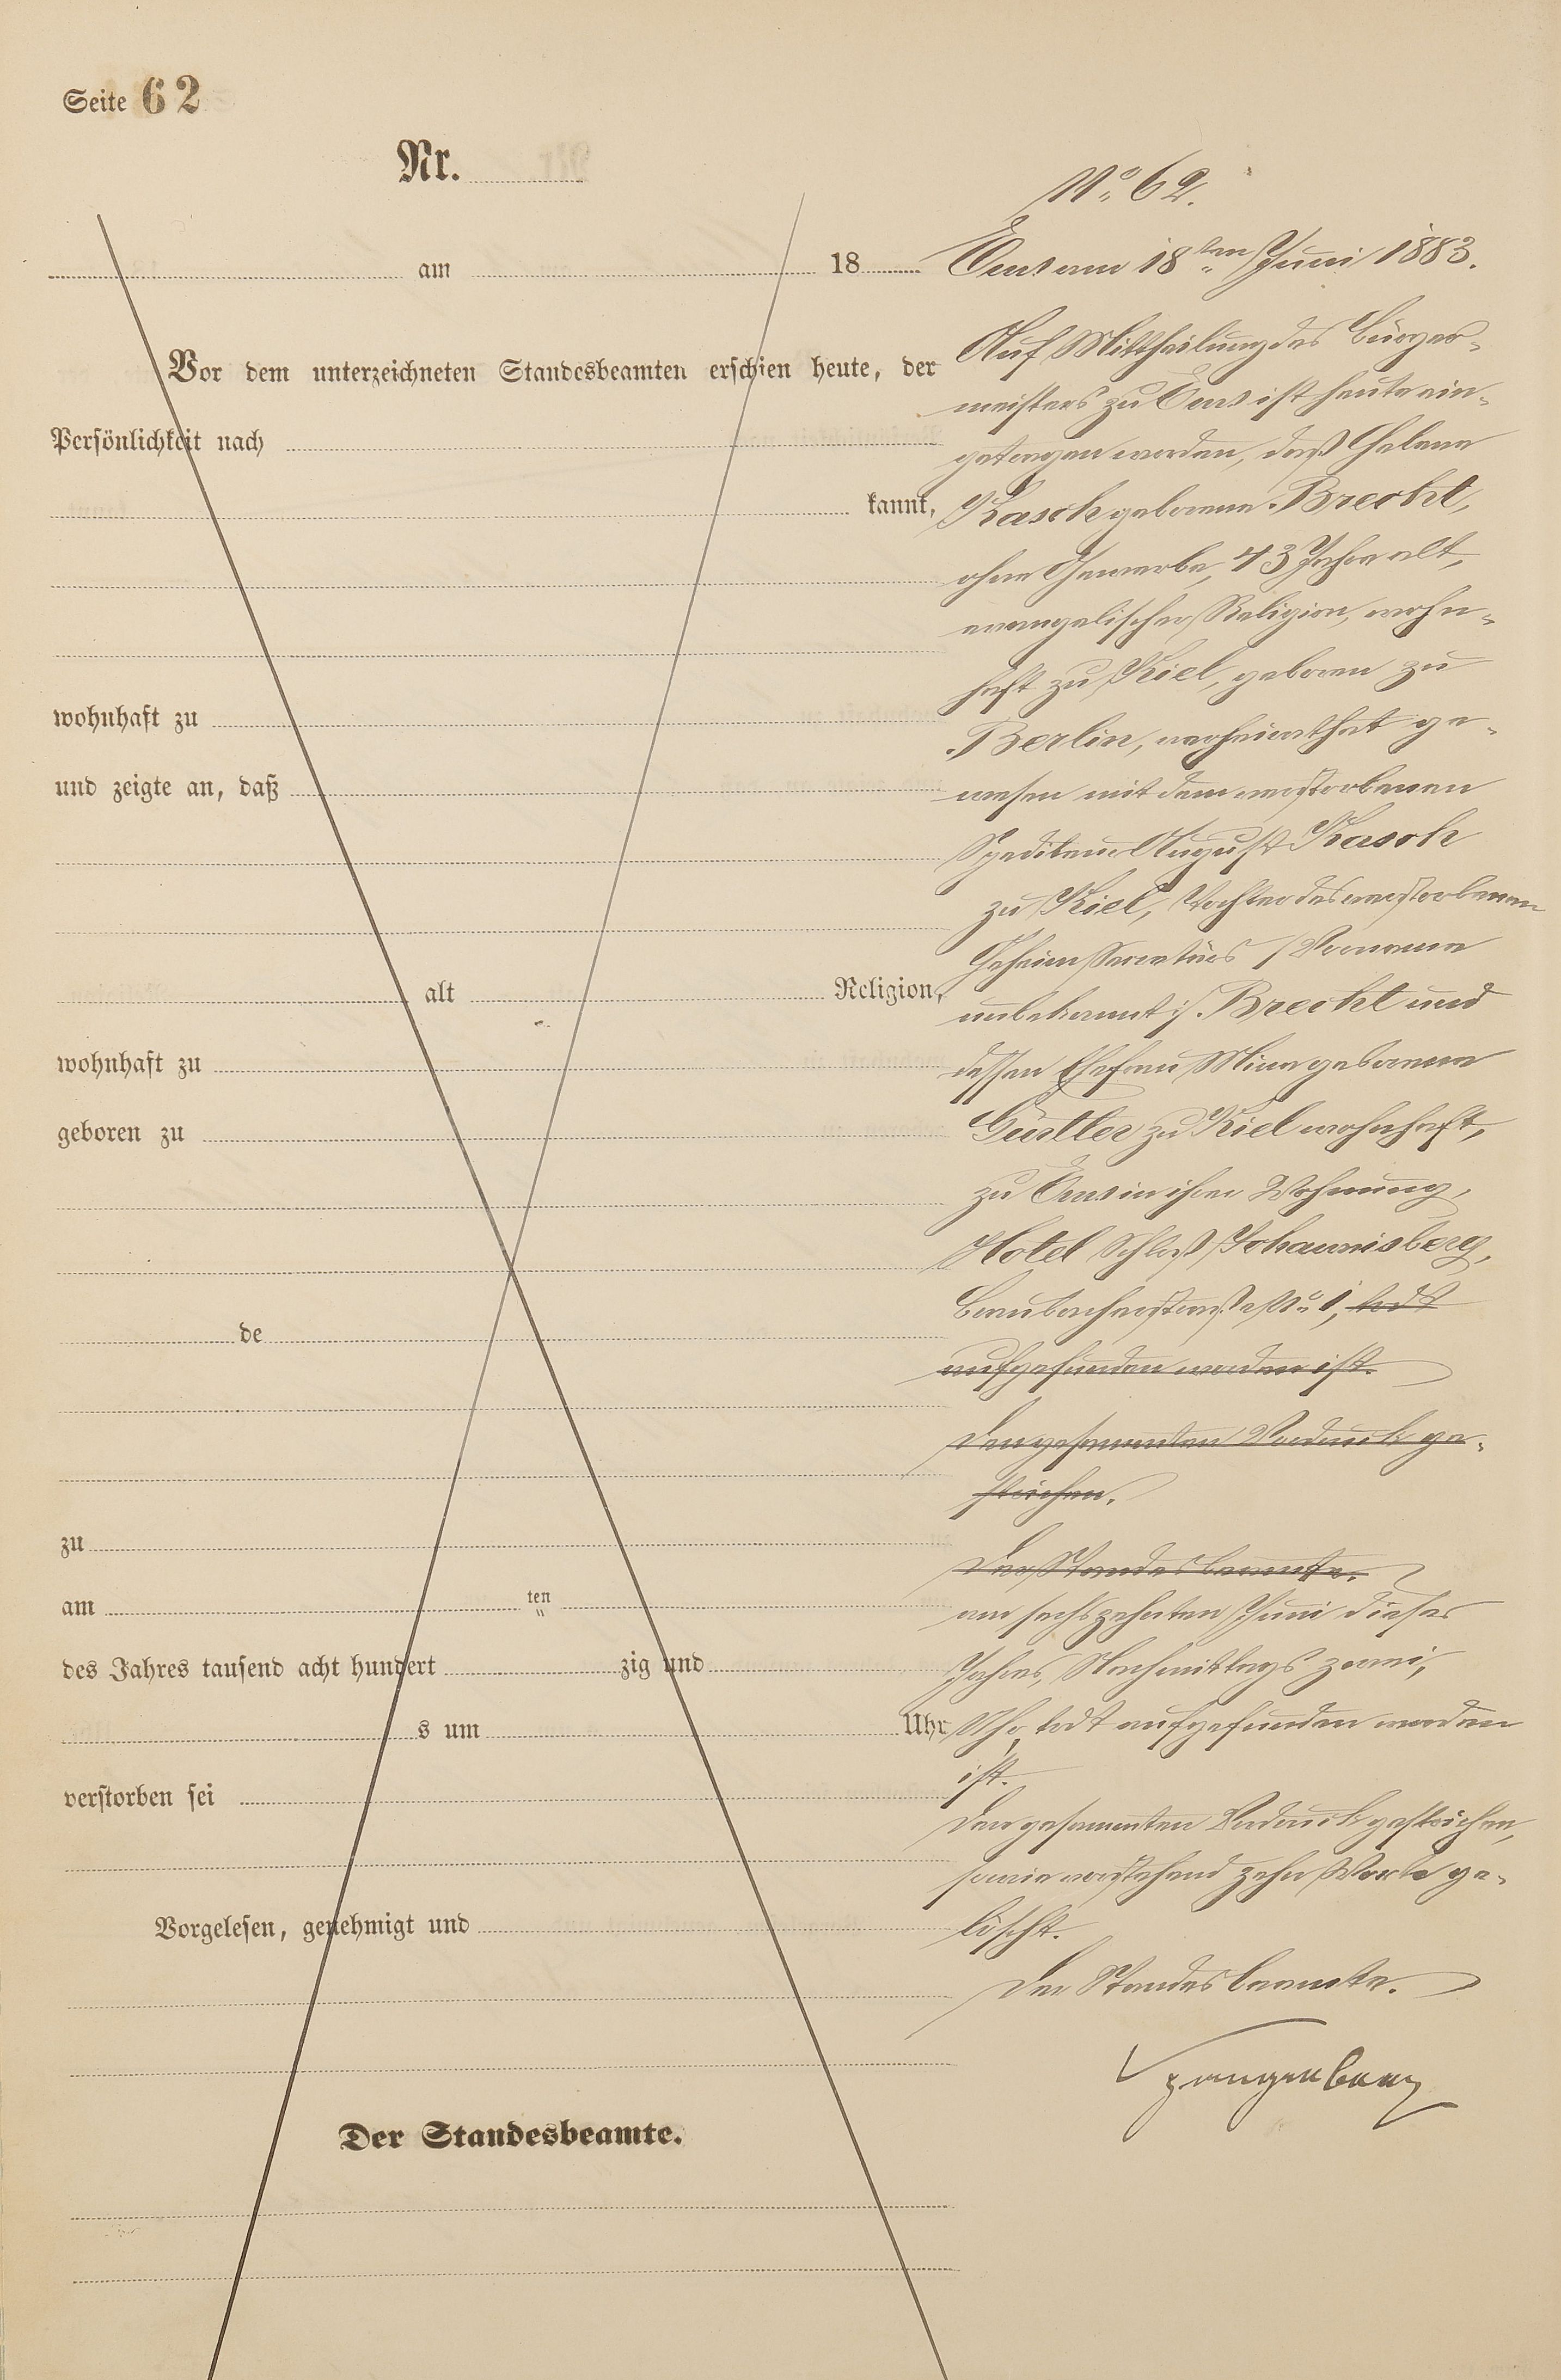 Seite 62
Nr.
am 18
Vor dem unterzeichneten Standesbeamten erschien heute, der
Persönlichkeit nach
kannt,
wohnhaft zu
und zeigte an, daß
alt Religion,
wohnhaft zu
geboren zu
de
zu
am ten
des Jahres tausend acht hundert zig und
s um Uhr
verstorben sei
Vorgelesen, genehmigt und
Der Standesbeamte.
No. 62.
Ems am 18ten Juni 1883.
Auf Mittheilung des Bürger-
meisters zu Ems ist heute ein-
getragen worden, daß Helene
Kasch geborene Brecht,
ohne Gewerbe, 43 Jahre alt,
evangelischer Religion, wohn-
haft zu Kiel, geboren zu
Berlin, verheirathet ge-
wesen mit dem verstorbenen
Spediteur August Kasch
zu Kiel, Tochter des verstorbenen
Geheimsecretärs /Vorname
unbekannt/. Brecht und
dessen Ehefrau Mina geborene
zu Kiel wohnhaft,
zu Ems in ihrer Wohnung,
Hotel Schloß Johannisberg,
No. 1, todt
aufgefunden worden ist.
Den gesammten Vordruck ge-
strichen.
Der Standesbeamte.
am sechszehnten Juni dieses
Jahres, Nachmittags zwei,
Uhr, todt aufgefunden worden
ist.
Den gesammten Vordruck gestrichen,
sowie vorstehend zehn Worte ge-
löscht.
Der Standesbeamte.